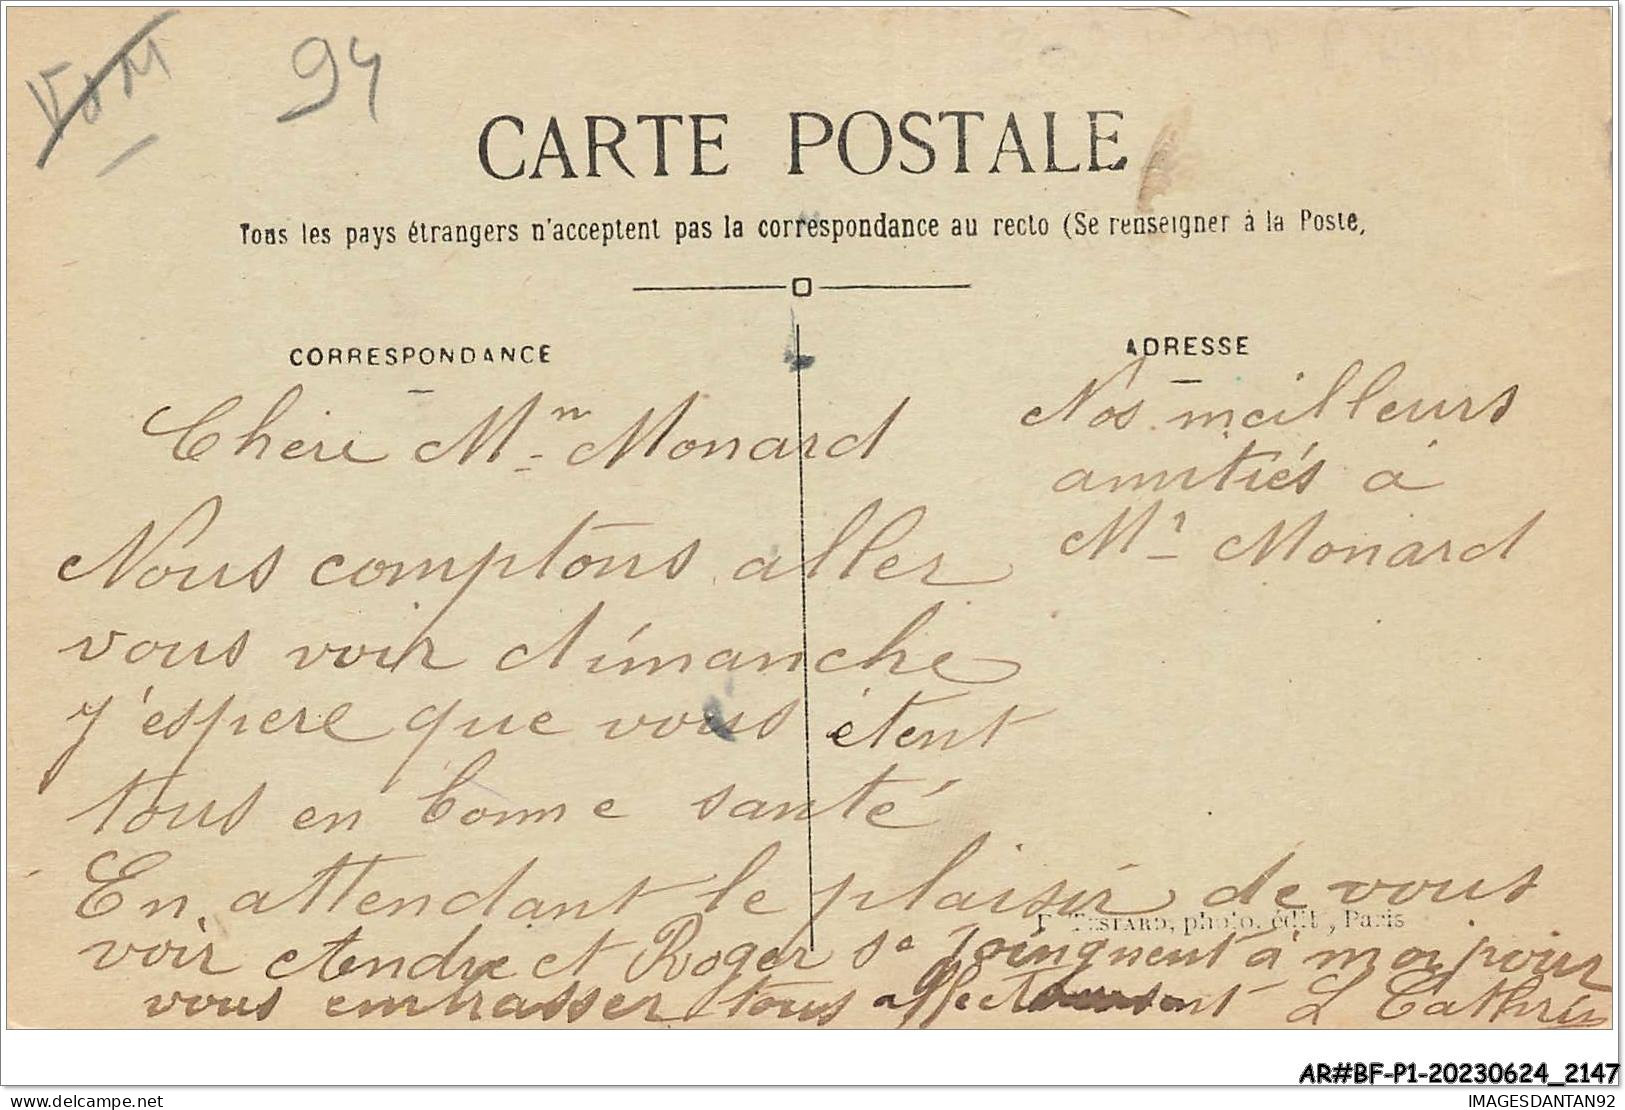 VdM 94
CARTE POSTALE
Tous les pays étrangers n'acceptent pas la correspondance au recto (Se renseigner à la Poste,
CORRESPONDANCE
Chère Mm Monard
Nous comptons aller
vous voir dimanche
j'espere que vous étent
tous en bonne santé
En attendant le plaisir de vous
voir et Roger se joingnent à moi pour
vous embrasser tous L Cathrin
ADRESSE
Nos meilleurs
amitiés à
Mr Monard
TESTARD, photo. édit, Paris
AR#BF-P1-20230624_2147
delcampe.net
IMAGESDANTAN92